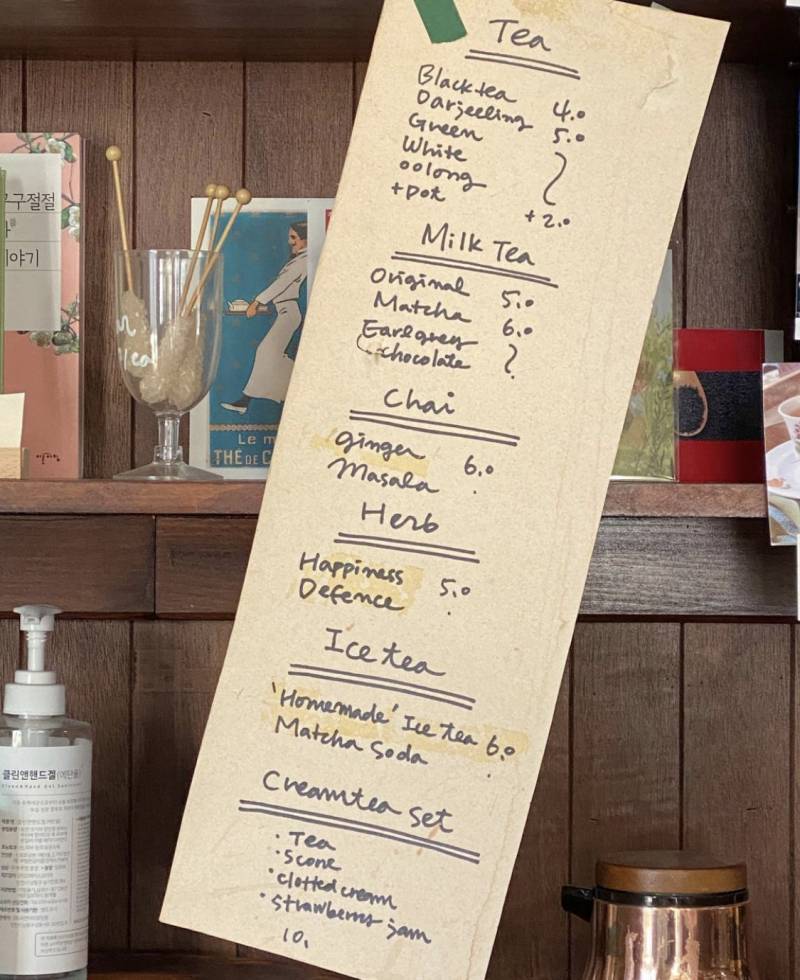 Tea
Black tea 4.0
Darjeeling 5.0
Green
White
oolong
+pot +2.0
Milk Tea
Original 5.0
Matcha 6.0
Earlgrey
chocolate
Chai
ginger 6.0
Masala
Herb
Happiness 5.0
Defence
Ice tea
'Homemade' Ice tea 6.0
Matcha Soda
Creamtea set
· Tea
· Scone
· clotted cream
· Strawberry jam
10.
구구절절
이야기
Le m
THÉ DE C
클린앤핸드겔(에탄올)